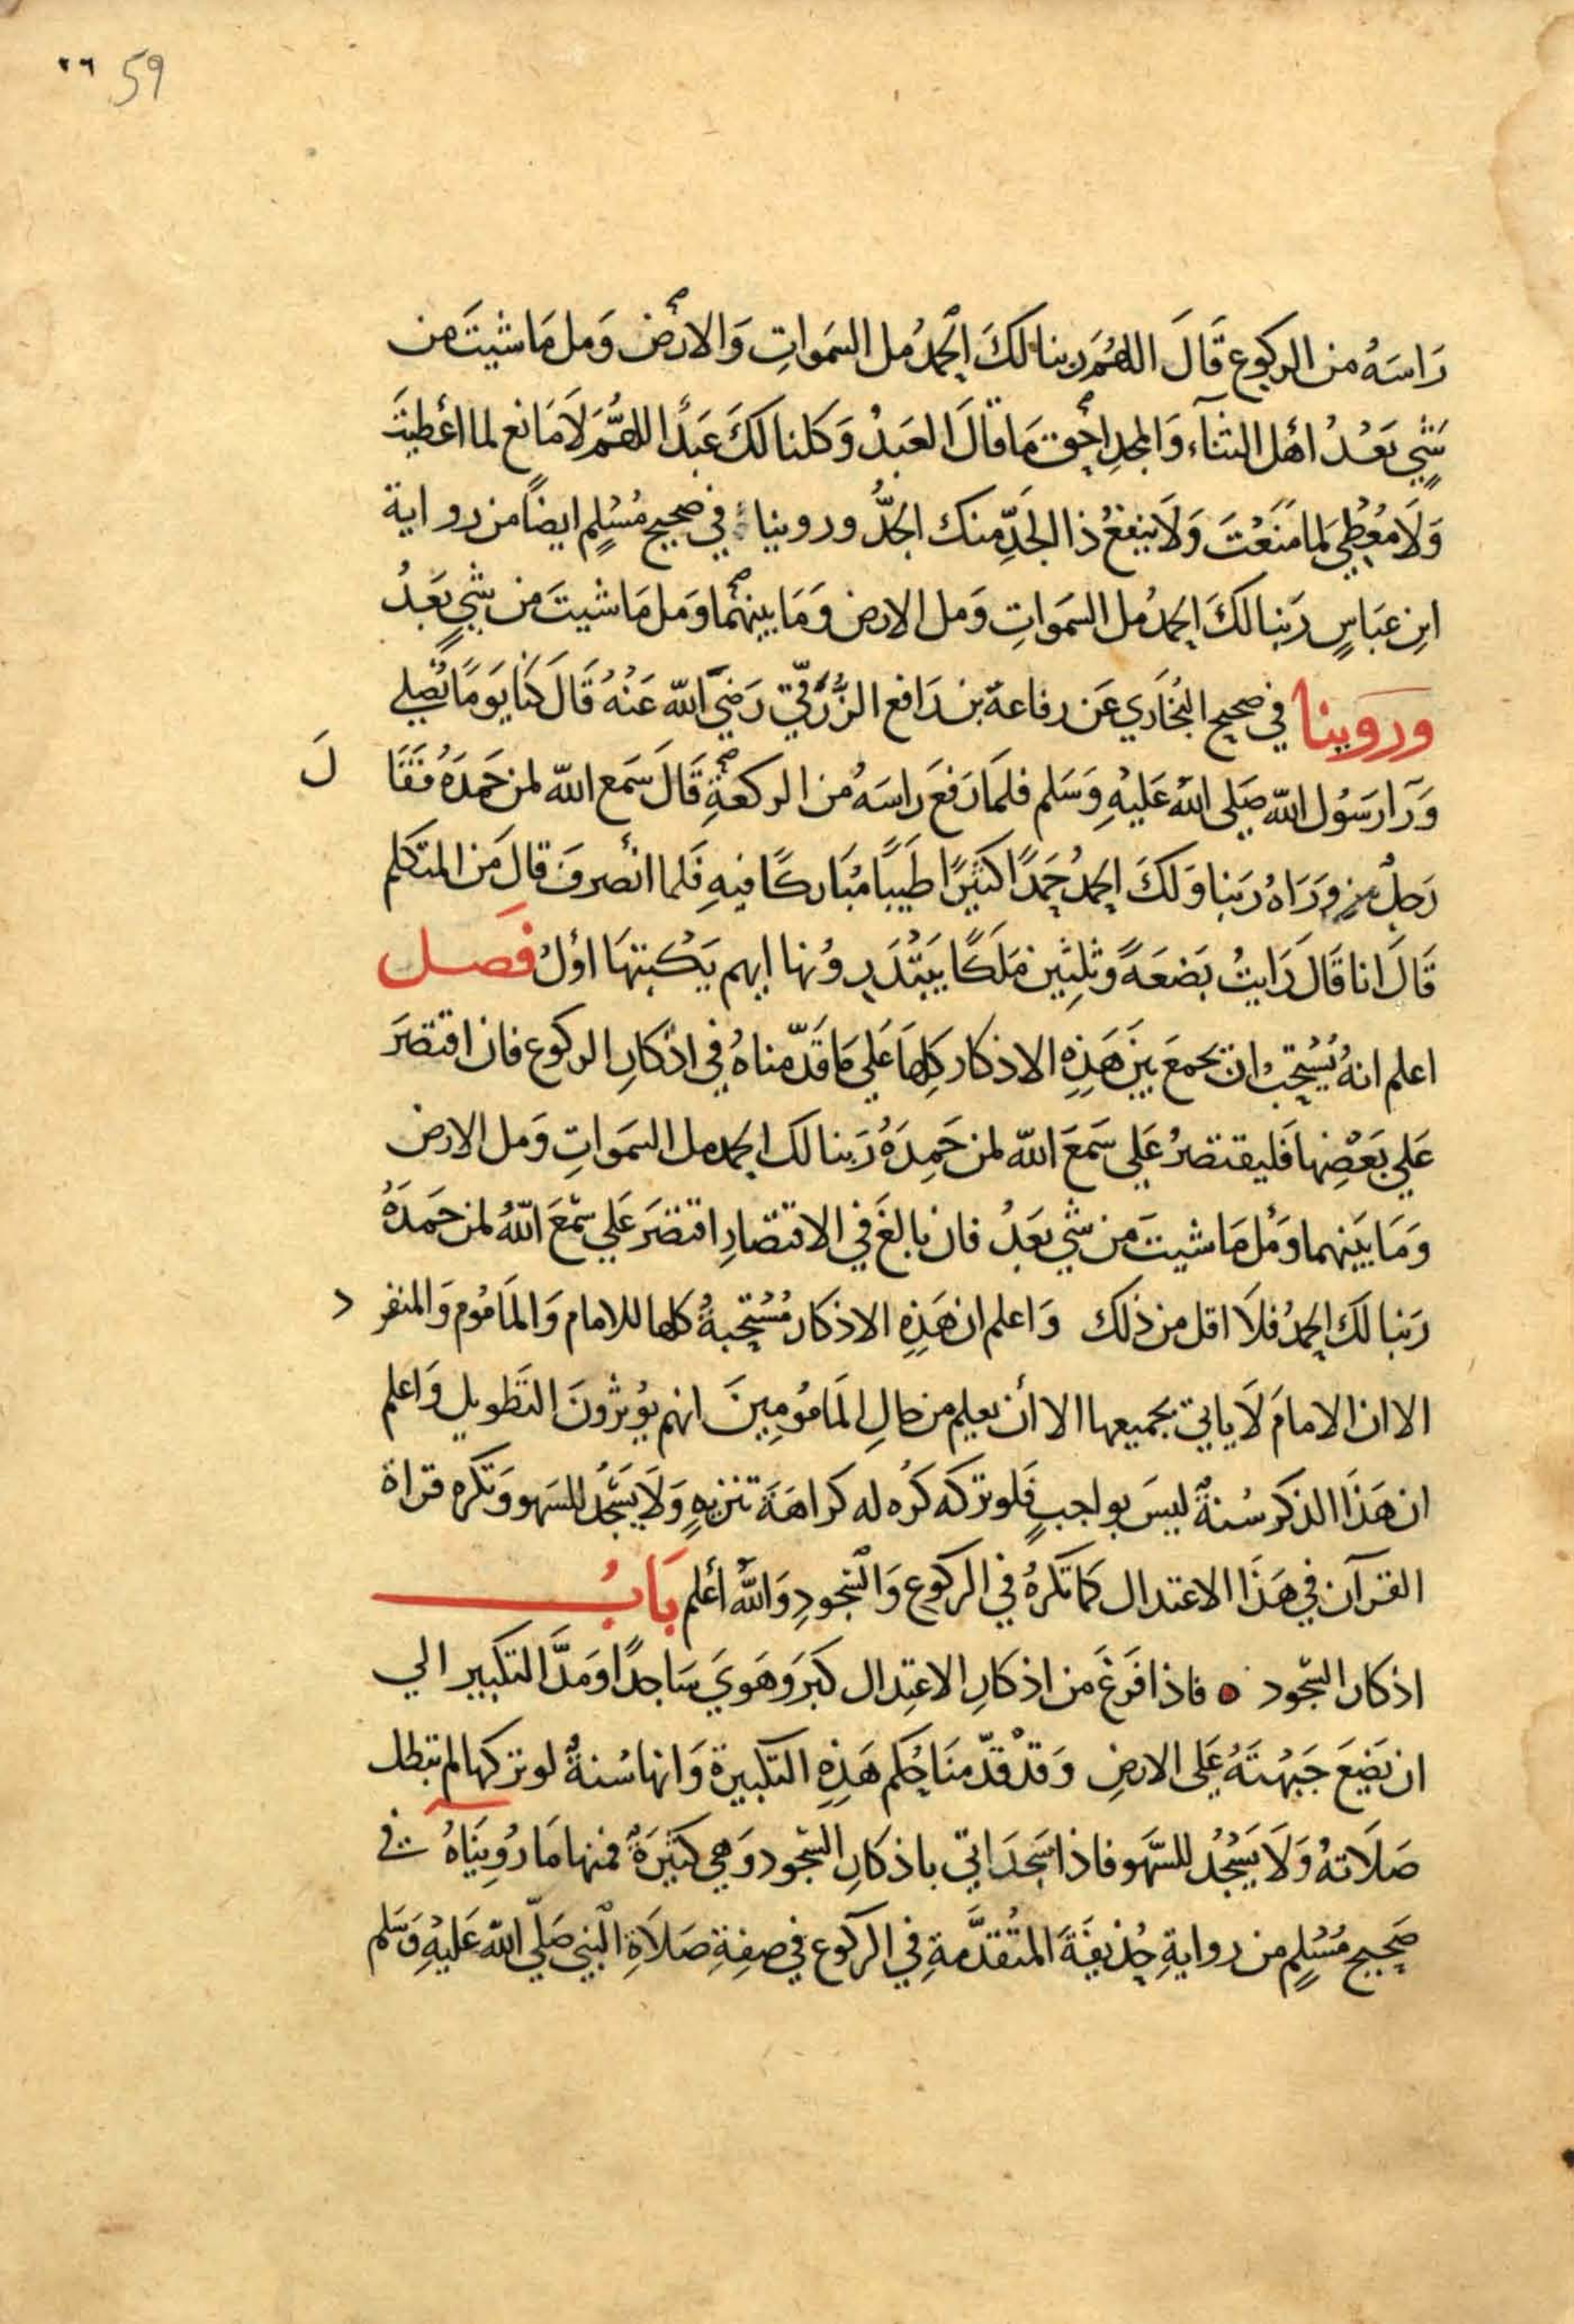 ٢٦ 59
رَاسَهُ من الركوع قَالَ اللهُمَ ربنا لكَ الحمدُ مل السَموَاتِ وَالارْض وَمل مَا شيتَ من
شيٍ بَعْدُ اهْل الثناء وَالمجدِ احَق مَا قالَ العَبدُ وَكلنا لكَ عَبدًا اللهُمَّ لَا مَانع لما اعْطيتَ
وَلَا مُعْطِي لِمَا مَنَعْتَ وَلَا ينفعُ ذا الجَدِّ منك الجدُّ وروينا في صحيح مُسْلِم ايضًا من رواية
ابنِ عبَاسٍ رَبنا لكَ الحمدُ مل السَموَاتِ وَمل الارض وَمَا بينهُما وَمل مَا شيتَ من شيٍ بَعَدُ
وروينا في صحيح البُخاري عَن رفاعة بن رَافع الزُّرَقيّ رَضيَ الله عَنْهُ قَالَ كنا يَومًا نُصَلي
وَرَآ رَسُول الله صَلى اللهُ عَليْهِ وَسَلم فلمَا رَفعَ رَاسَهُ من الركعَةِ قَالَ سَمع الله لمن حَمدَهُ فقَا لَ
رَجلٌ من وَرَاهُ رَبنا وَلكَ الحمدُ حَمدًا كثيرًا طَيبًا مُبَاركًا فيهِ فَلما انْصرفَ قالَ مَن المتكلم
قَالَ انا قَالَ رَايتُ بَضعَةً وثلثِين مَلَكًا يَبْتَدِرونها ايهم يَكْتبهَا اوْلُ فصَل
اعلم انهُ يُسْتحَبُ ان يجمعَ بَين هَذِهِ الاذكار كلهَا عَلي مَا قَدّمناهُ في اذْكارِ الركوع فان اقتصَرَ
عَلي بَعْضِهَا فَليقتصرُ عَلي سَمعَ الله لمن حَمِدَهُ رَبنا لك الحمد مل السَموَاتِ وَمل الارض
وَمَا بَينهما وَمْل مَا شيتَ من شي بَعدُ فان بالغَ في الاقتصَارِ اقتصَرَ عَلي سمْعَ اللهُ لمن حَمدَهُ
رَبنا لكَ الحمدُ فلَا اقل من ذلك وَاعلم ان هَذِهِ الاذكار مُسْتحبةُ كلها للامام وَالمَامُوم وَالمنفر د
الا ان الامامَ لَا ياتي بجميعها الا أن يعلم من حالِ المَامُومِينَ انهم يُوثرُونَ التَطويل وَاعلم
ان هَذَا الذكر سُنةٌ ليسَ بواجبٍ فَلو تركه كُرُه له كراهَةَ تنزيهٍ وَلَا يَسْجُد للسَهو وَتكره قراة
القرآن في هَذَا الاعتدال كمَا تكَرهُ في الركوع وَالسُجودِ وَاللهُ أعْلم بَابُ
اذكار السجود ه فاذا فرَغَ مَن اذكارِ الاعتِدال كبَرَ وَهَويَ سَاجدًا وَمَدَّ التكبير الي
ان يَضَعَ جَبْهتَهُ عَلى الارضِ وَقدْ قدّمنَا حُكم هَذِهِ التكبيرة وَانها سُنةٌ لو تركها لم تبطل
صَلَاتهُ وَلَا يَسْجُدُ للسَّهَو فاذا سَجدَ اتي باذكارِ السّجود وَهي كثيرَةٌ فمنها مَا رُويناهُ في
صَحِيح مُسْلِم من روايةِ حُذيفَةَ المتُقدَّمةِ في الركوع في صفِةِ صَلَاةِ النبي صَلّى الله عَليْهِ وَسَلم